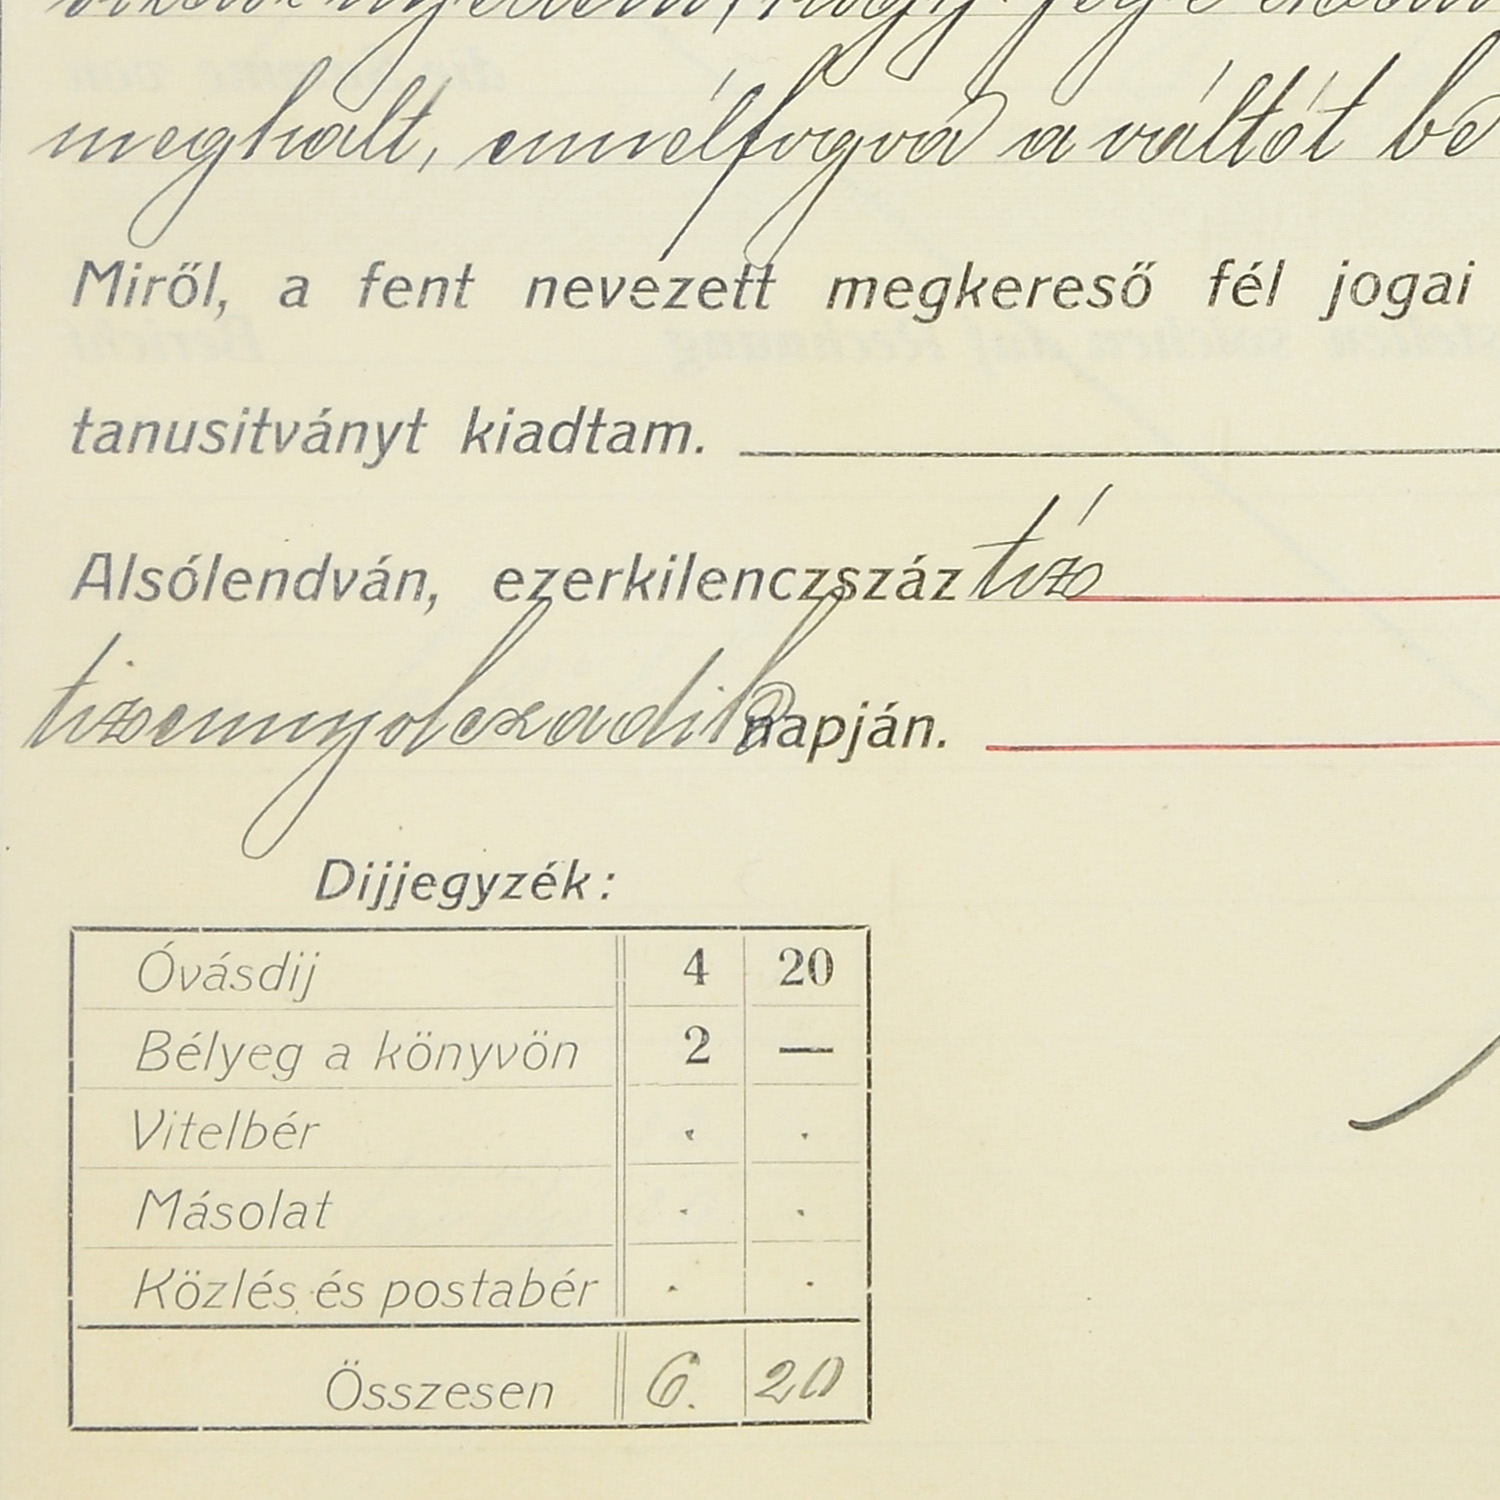 meghalt, ennélfogva a váltót be
Miről, a fent nevezett megkereső fél jogai
tanusitványt kiadtam.
Alsólendván, ezerkilenczszáz tíz
tizennyolczadik napján.
Dijjegyzék:
Óvásdij 4 20
Bélyeg a könyvön 2 —
Vitelbér . .
Másolat . .
Közlés és postabér . .
Összesen 6. 20